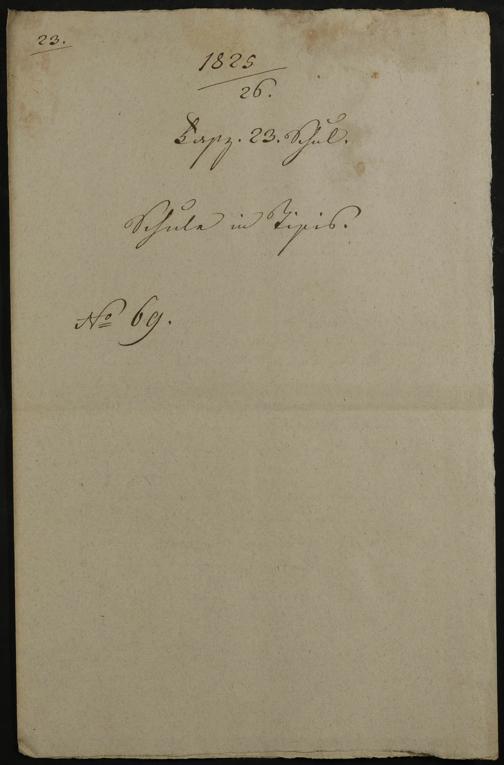 23.
1825
26.
23. Schul.
Schule in
No 69.